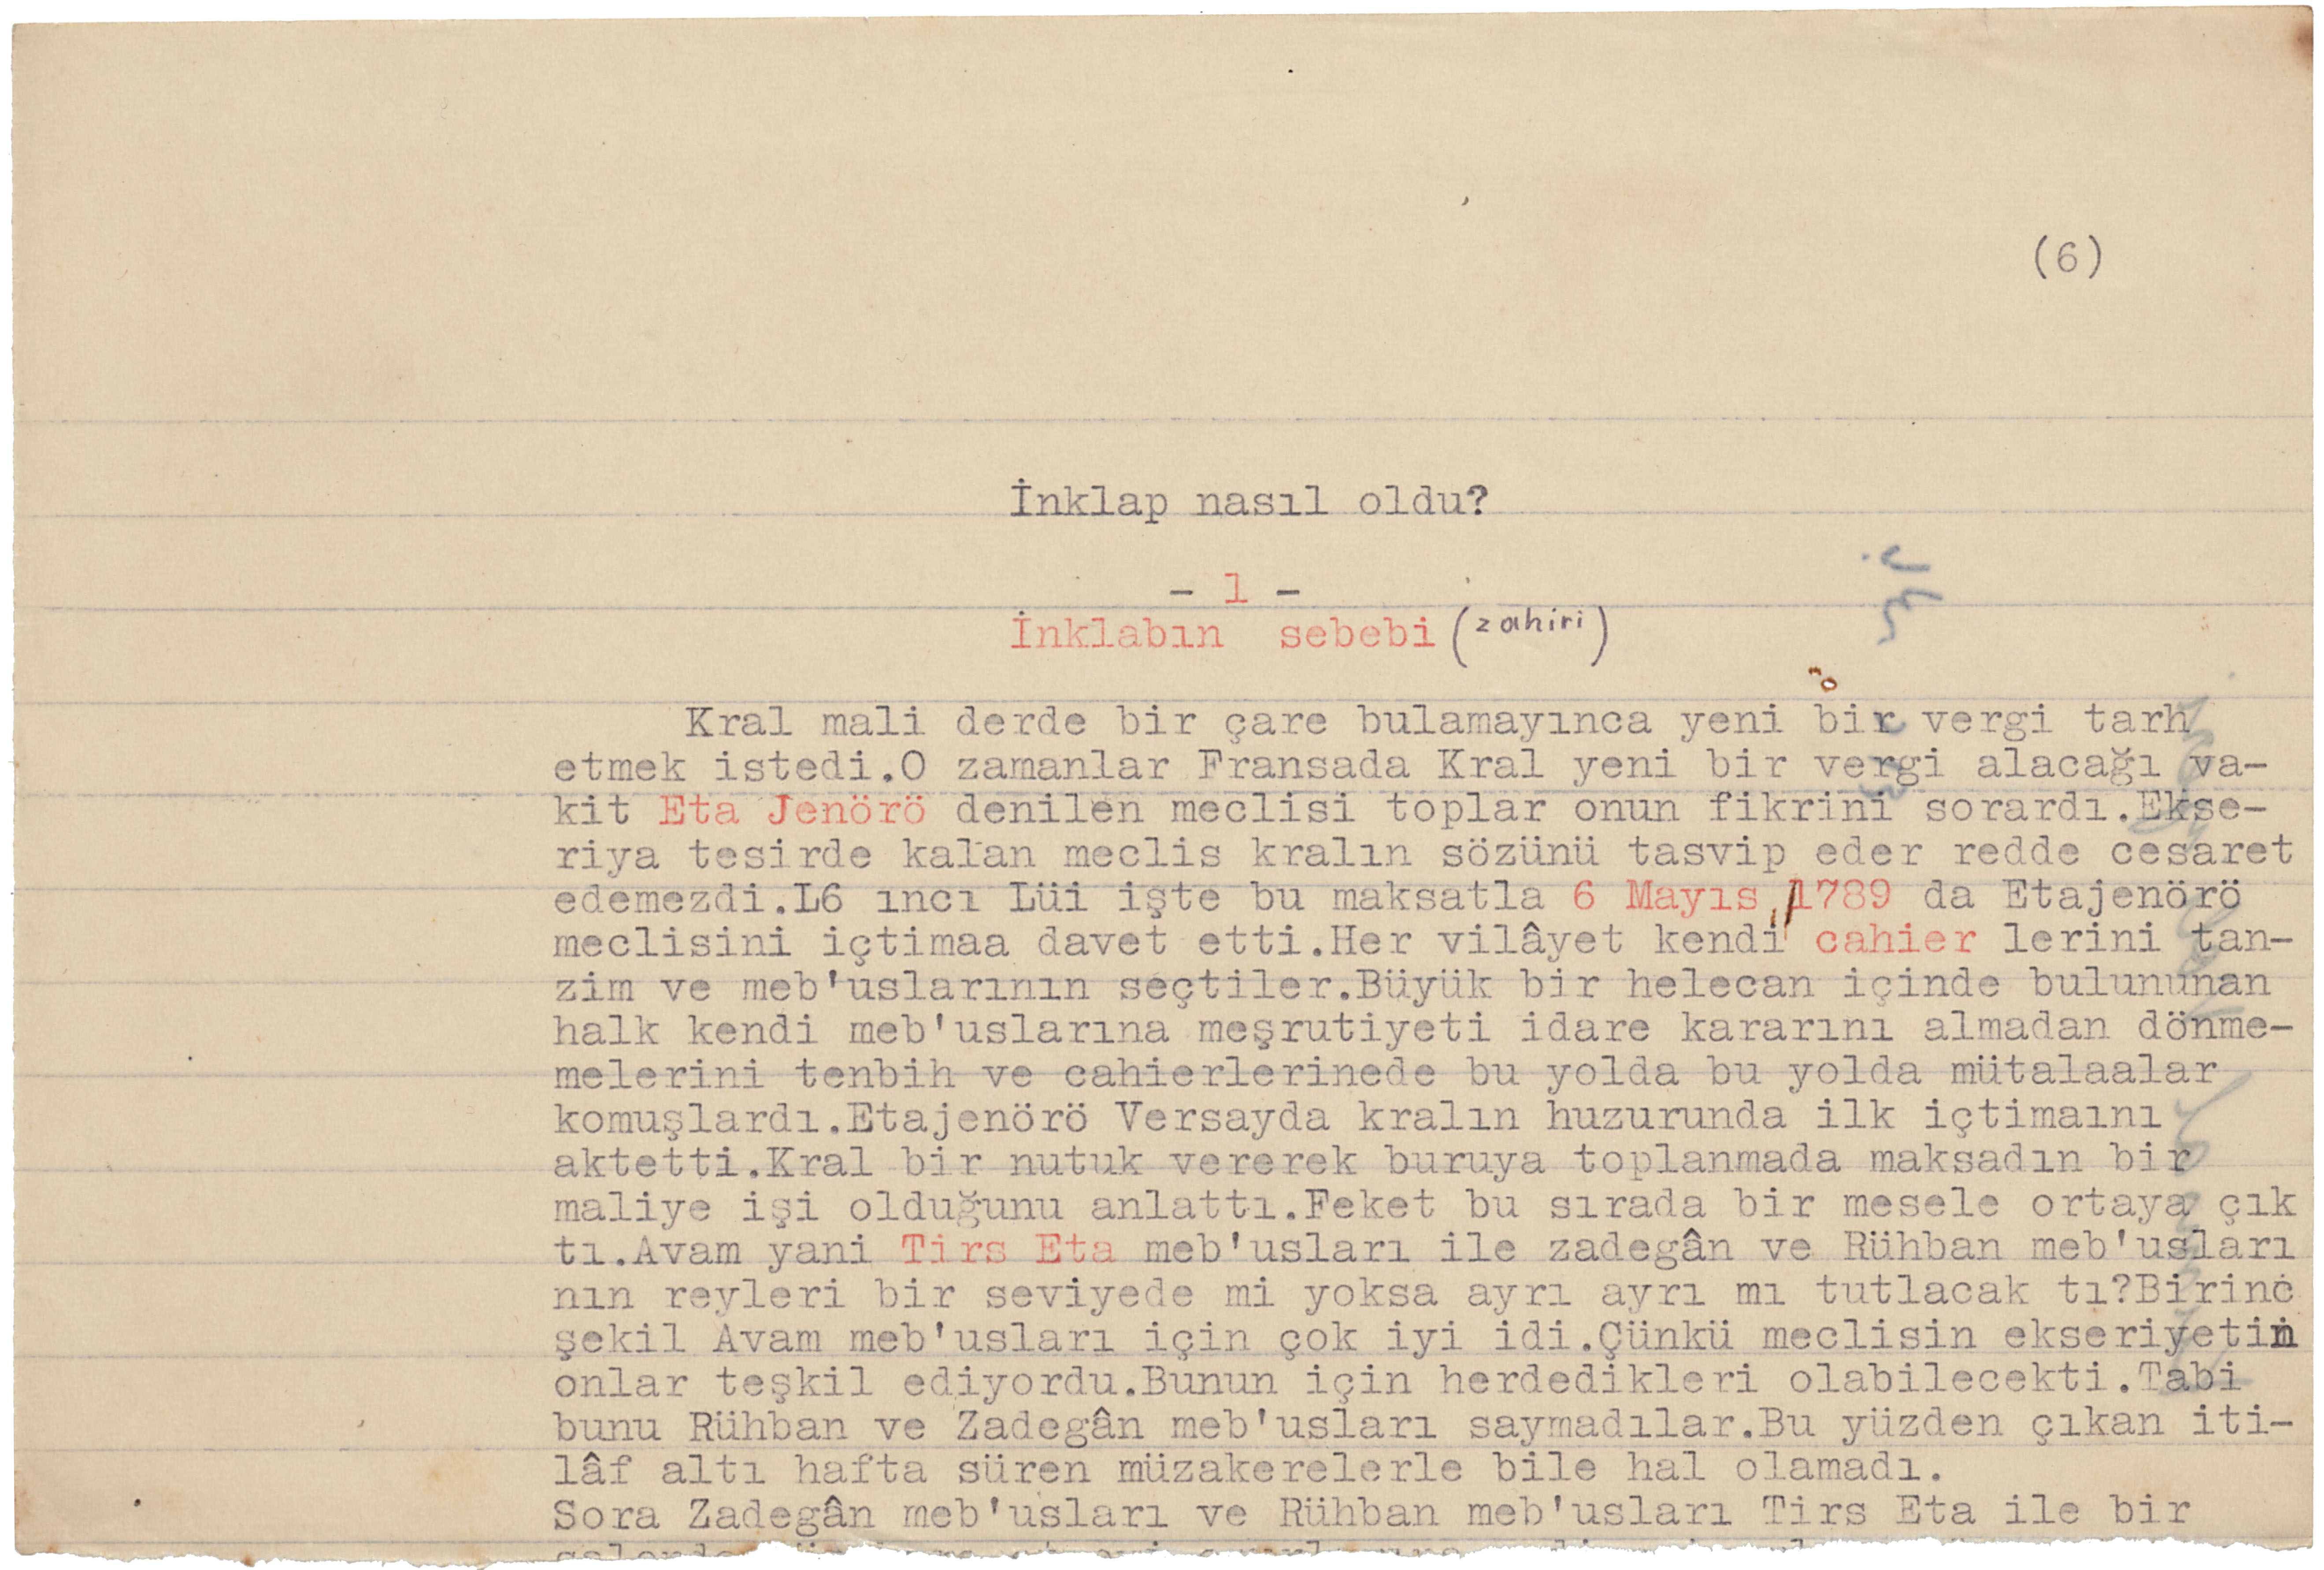 (6)
İnklap nasıl oldu?
- 1 -
İnklabın sebebi (zahiri)
Kral mali derde bir çare bulamayınca yeni bir vergi tarh
etmek istedi.O zamanlar Fransada Kral yeni bir vergi alacağı va-
kit Eta Jenörö denilen meclisi toplar onun fikrini sorardı.Ekse-
riya tesirde kalan meclis kralın sözünü tasvip eder redde cesaret
edemezdi.L6 ıncı Lüi işte bu maksatla 6 Mayıs 1789 da Etajenörö
meclisini içtimaa davet etti.Her vilâyet kendi cahier lerini tan-
zim ve meb'uslarının seçtiler.Büyük bir helecan içinde bulununan
halk kendi meb'uslarına meşrutiyeti idare kararını almadan dönme-
melerini tenbih ve cahierlerinede bu yolda bu yolda mütalaalar
komuşlardı.Etajenörö Versayda kralın huzurunda ilk içtimaını
aktetti.Kral bir nutuk vererek buruya toplanmada maksadın bir
maliye işi olduğunu anlattı.Feket bu sırada bir mesele ortaya çık
tı.Avam yani Tirs Eta meb'usları ile zadegân ve Rühban meb'usları
nın reyleri bir seviyede mi yoksa ayrı ayrı mı tutlacak tı?Birinc
şekil Avam meb'usları için çok iyi idi.Çünkü meclisin ekseriyetin
onlar teşkil ediyordu.Bunun için herdedikleri olabilecekti.Tabi
bunu Rühban ve Zadegân meb'usları saymadılar.Bu yüzden çıkan iti-
lâf altı hafta süren müzakerelerle bile hal olamadı.
Sora Zadegân meb'usları ve Rühban meb'usları Tirs Eta ile bir